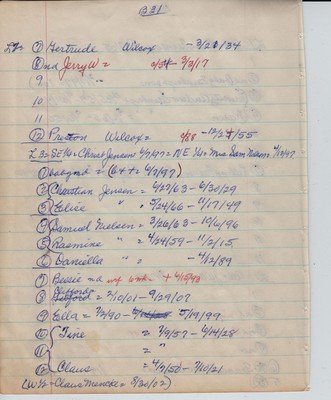 B31
L2= 7 Gertrude Wilcox - 3/21/34
8 nd Jerry W = 3/3/17
9 "
10 "
11
12 Preston Wilcox = 2/88 - 12/27/55
L 32= SE 1/4 = Christ Jensen 6/7/97 = N E 1/4 = Mrs Sam Nelson 4/12/97
1 baby nd = (6 4 = 6/2/97)
2 Christian Jensen = 6/27/63 - 6/30/29
3 Elsie " = 5/24/66 - 11/17/49
4 Samuel Nielsen = 3/26/63 - 10/6/96
5 Rasmine " = 4/24/59 - 11/2/15
6 Daniella " = - 4/12/89
7 Bessie nd inf + 4/15/93
8 Clifford = 2/10/01 - 9/29/07
9 Ella = 7/2/90 - 5/19/99
10 Tine = 7/9/57 - 6/14/28
11 = "
12 Claus = 4/2/50 - 7/10/21
(W 1/2 - Claus Mencke = 8/30/02)